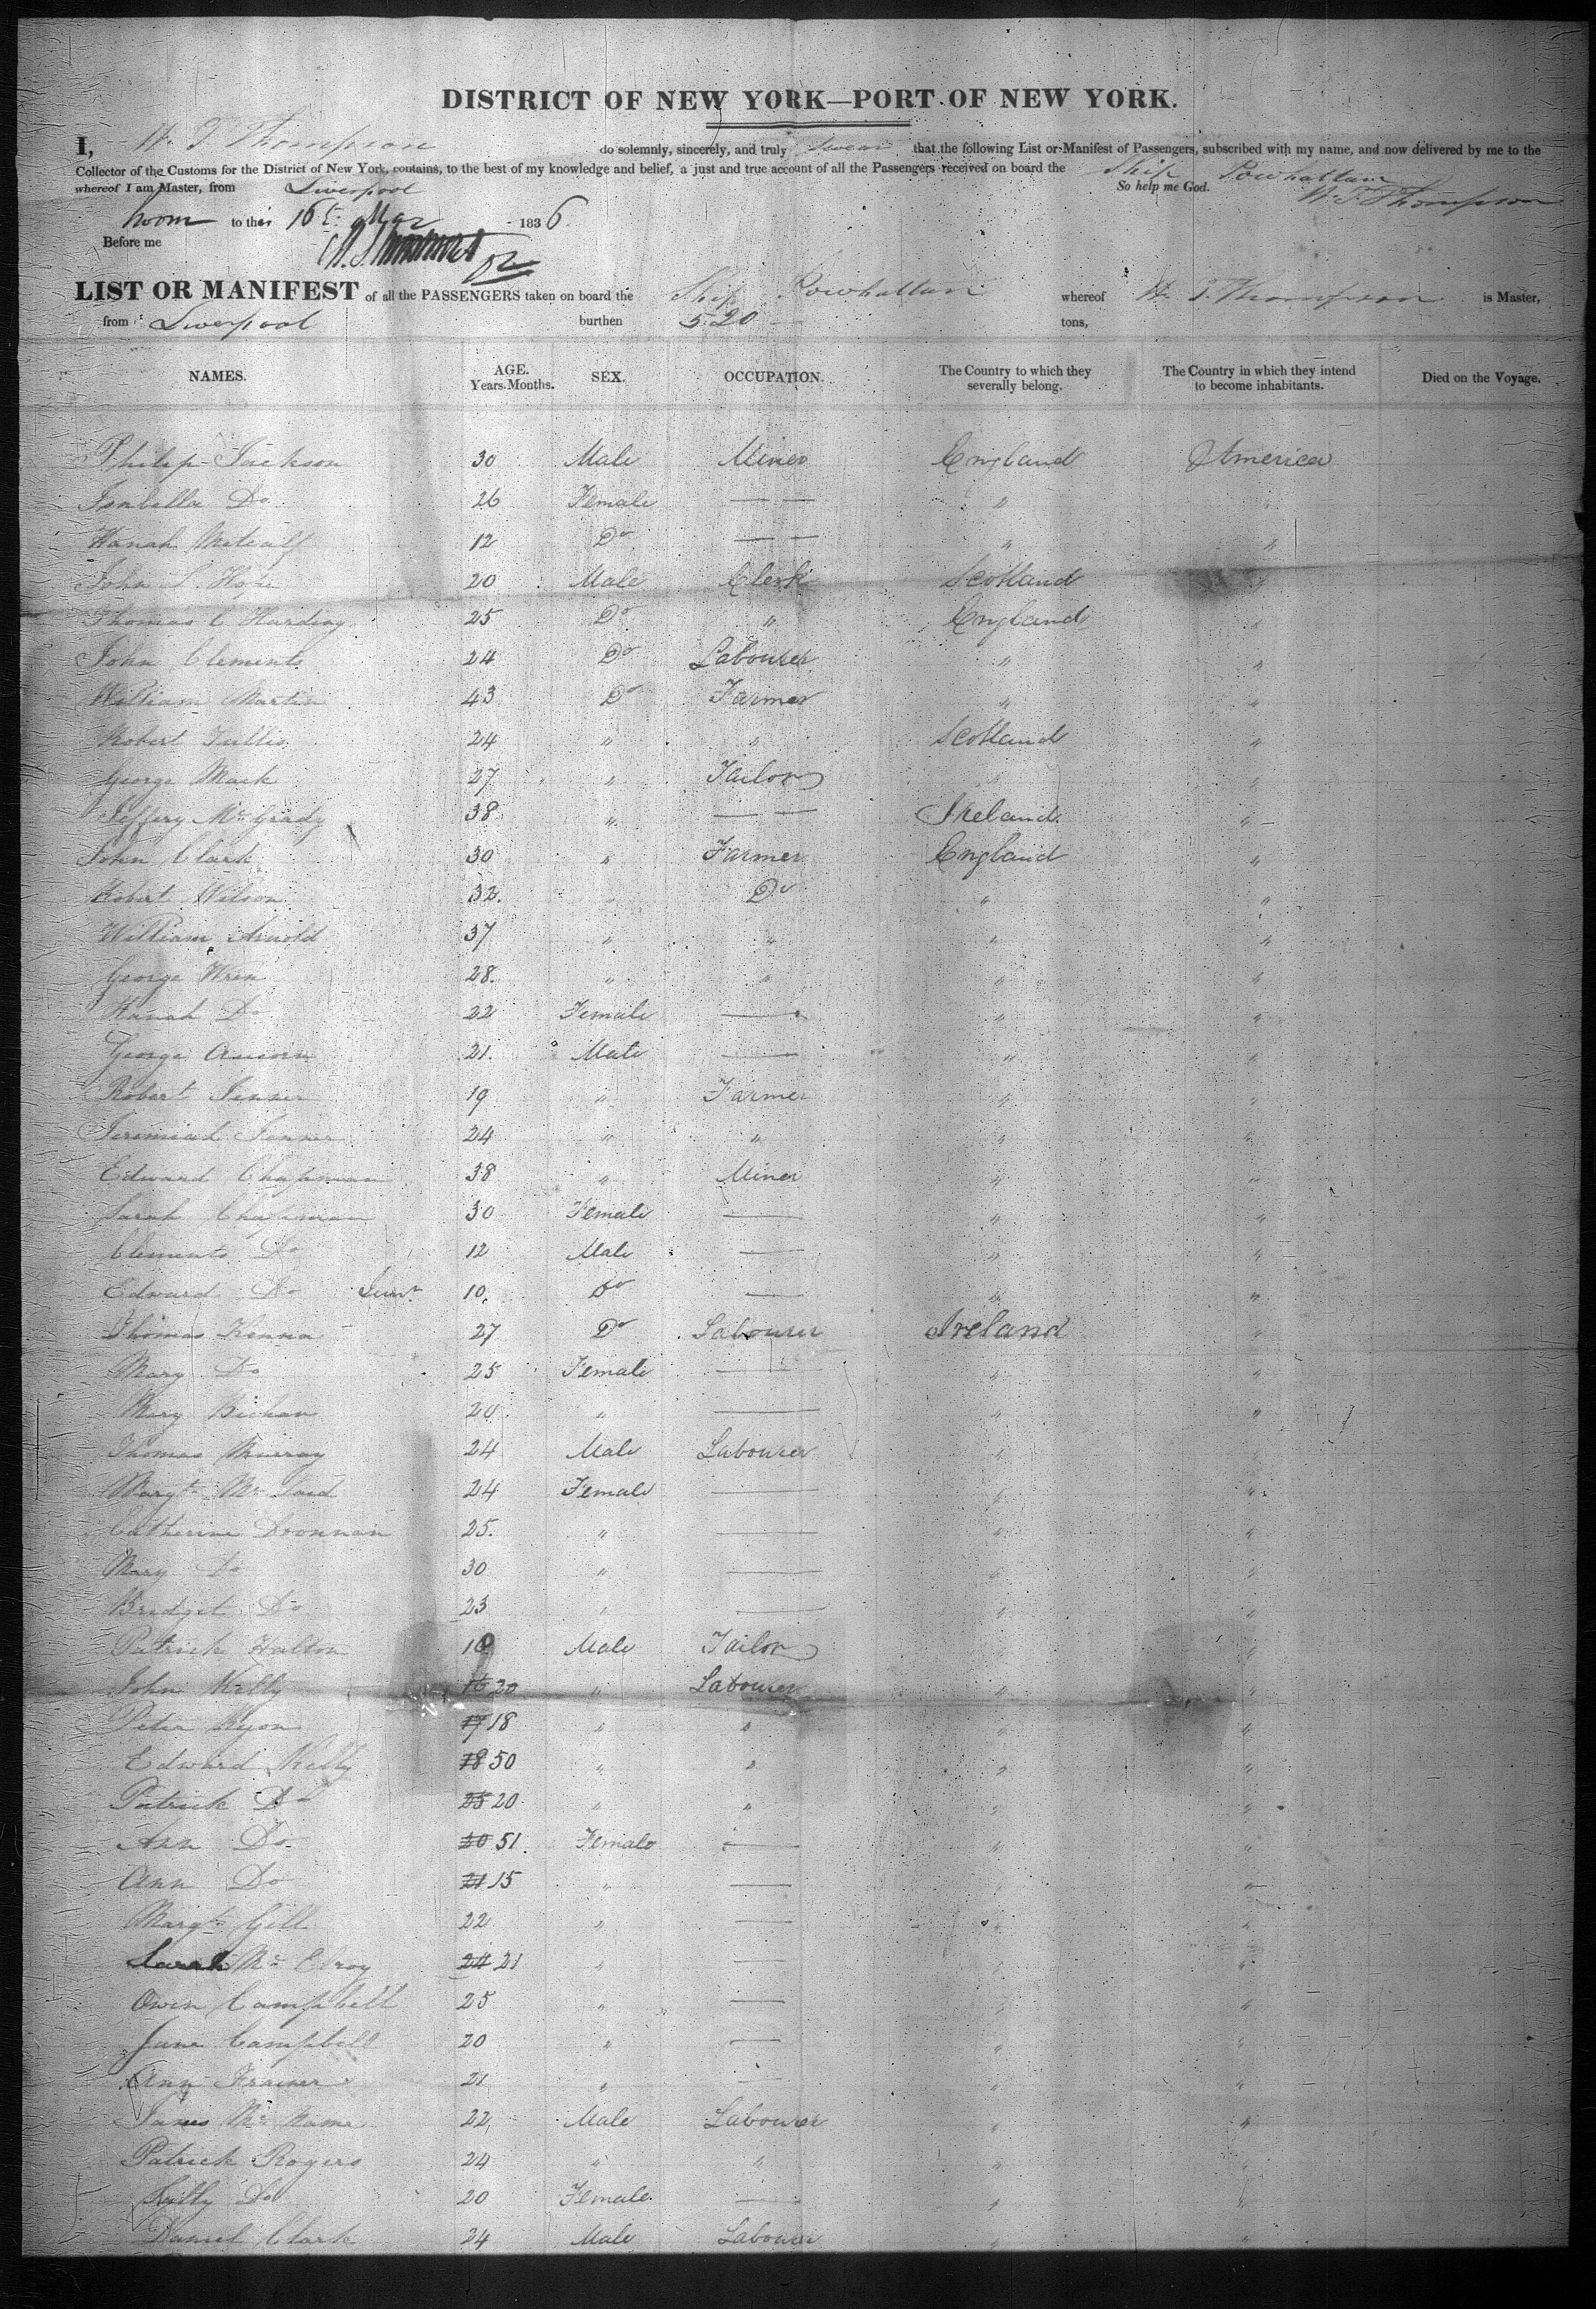 DISTRICT OF NEW YORK—PORT OF NEW YORK.
I, W. T Thompson do solemnly, sincerely, and truly swear that the following List or Manifest of Passengers, subscribed with my name, and now delivered by me to the
Collector of the Customs for the District of New York, contains, to the best of my knowledge and belief, a just and true account of all the Passengers received on board the Ship Powhattan
whereof I am Master, from Liverpool So help me God. W. T. Thompson
Sworn to this 16th May 1836
Before me
LIST OR MANIFEST of all the PASSENGERS taken on board the Ship Powhattan whereof W. T. Thompson is Master,
from Liverpool burthen 520 tons,
NAMES. AGE. Years. Months. SEX. OCCUPATION. The Country to which they severally belong. The Country in which they intend to become inhabitants. Died on the Voyage.
Philip Jackson 30 Male Miner England America
Isabella Do 26 Female — — " "
Hanah Metcalf 12 Do — — " "
John S. Hope 20 Male Clerk Scotland "
Thomas C Harding 25 Do " England "
John Clements 24 Do Labourer " "
William Martin 43 Do Farmer " "
Robert Tullis 24 " " Scotland "
George Mack 27 " Tailor " "
Jeffery Mc Grady 38 " — — Ireland "
John Clark 30 " Farmer England "
Robert Wilson 32 " Do " "
William Arnold 37 " " " "
George Wren 28 " " " "
Hanah Do 22 Female — " "
George 21 Male — " "
Robert Jenner 19 " Farmer " "
Jeremiah Jenner 24 " " " "
Edward Chapman 38 " Miner " "
Sarah Chapman 30 Female — " "
Clements Do 12 Male — " "
Edward Do Junr 10 Do — " "
Thomas Kenna 27 Do Labourer Ireland "
Mary Do 25 Female — " "
Mary 20 " — " "
Thomas Murray 24 Male Labourer " "
Margt Mc 24 Female — " "
Catherine Dronnan 25 " — " "
Mary Do 30 " — " "
Bridget Do 23 " — " "
Patrick Halton Male Tailor " "
John Kelly 16 20 " Labourer " "
Peter Ryon 17 18 " " " "
Edward Kelly 18 50 " " " "
Patrick Do 25 20 " " " "
Ann Do 20 51 Female — " "
Ann Do 21 15 " — " "
Margt Gill 22 " — " "
Sarah Mc Elroy 24 21 " — " "
Owen Campbell 25 " — " "
Jane Campbell 20 " — " "
Ann Frainer 21 " — " "
James Mc Name 22 Male Labourer " "
Patrick Rogers 24 " " " "
Do 20 Female — " "
Daniel Clark 24 Male Labourer " "